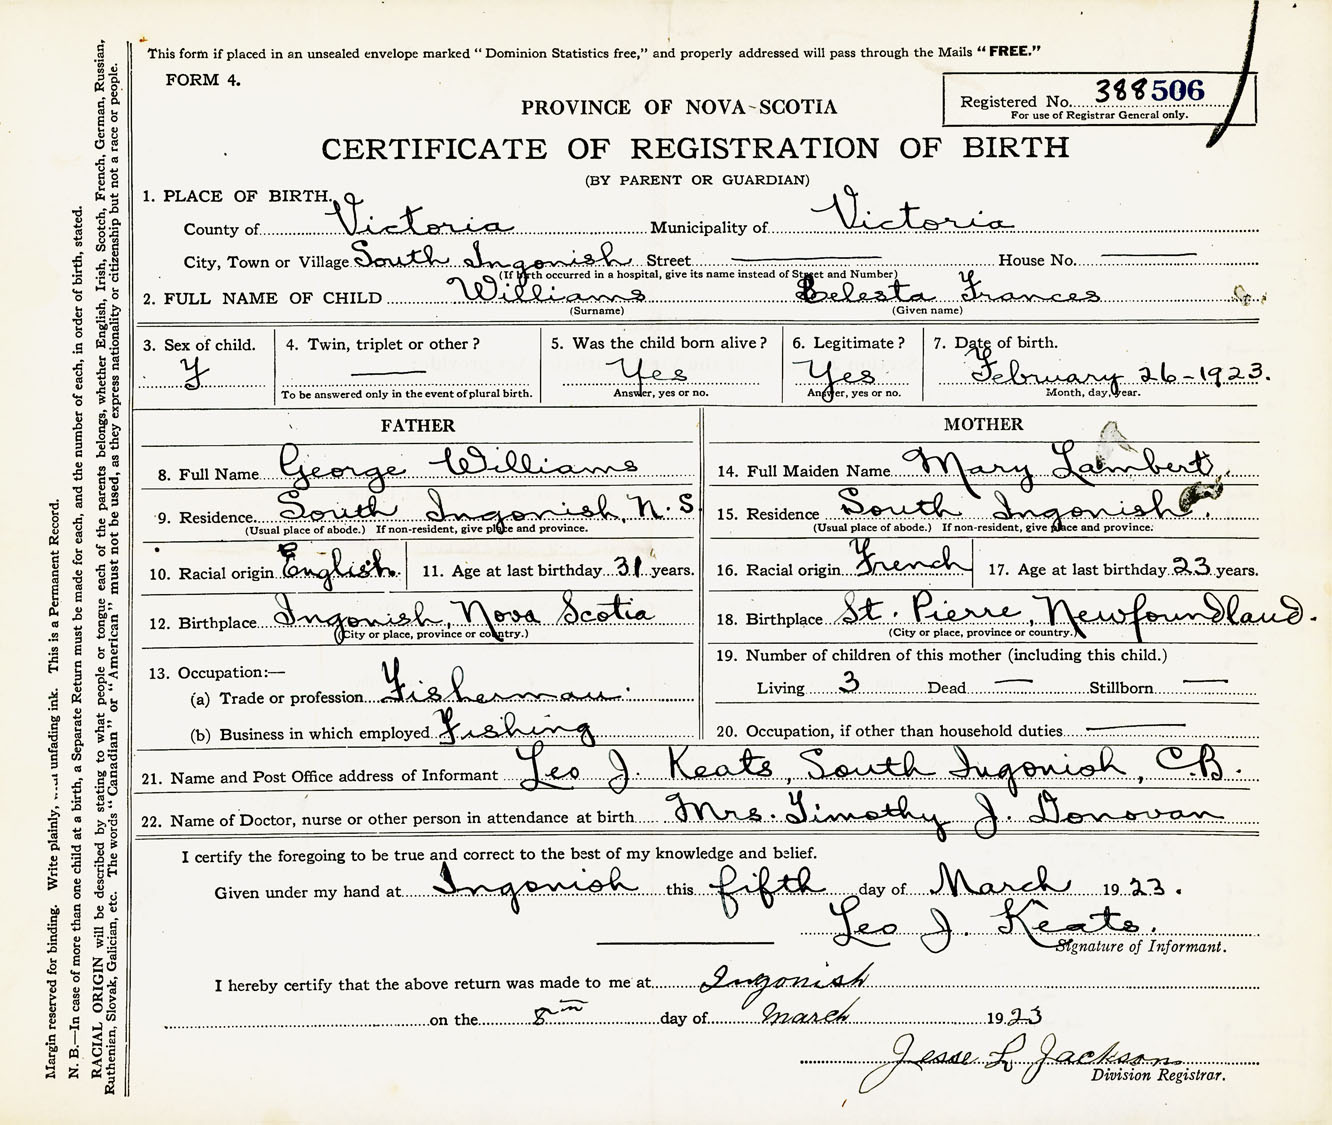 This form if placed in an unsealed envelope marked "Dominion Statistics free," and properly addressed will pass through the Mails "FREE."
FORM 4.
Registered No. 388506
For use of Registrar General only.
PROVINCE OF NOVA SCOTIA
CERTIFICATE OF REGISTRATION OF BIRTH
(BY PARENT OR GUARDIAN)
1. PLACE OF BIRTH.
County of Victoria Municipality of Victoria
City, Town or Village South Ingonish Street House No.
(If birth occurred in a hospital, give its name instead of Street and Number)
2. FULL NAME OF CHILD Williams Celesta Frances
(Surname) (Given name)
3. Sex of child. 4. Twin, triplet or other? 5. Was the child born alive? 6. Legitimate? 7. Date of birth.
F Yes Yes February 26-1923.
To be answered only in the event of plural birth. Answer, yes or no. Answer, yes or no. Month, day, year.
FATHER
8. Full Name George Williams
9. Residence South Ingonish, N.S.
(Usual place of abode.) If non-resident, give place and province.
10. Racial origin English 11. Age at last birthday 31 years.
12. Birthplace Ingonish, Nova Scotia
(City or place, province or country.)
13. Occupation:—
(a) Trade or profession Fisherman.
(b) Business in which employed Fishing
MOTHER
14. Full Maiden Name Mary Lambert.
15. Residence South Ingonish.
(Usual place of abode.) If non-resident, give place and province.
16. Racial origin French 17. Age at last birthday 23 years.
18. Birthplace St. Pierre, Newfoundland.
(City or place, province or country.)
19. Number of children of this mother (including this child.)
Living 3 Dead — Stillborn —
20. Occupation, if other than household duties
21. Name and Post Office address of Informant Leo J. Keats, South Ingonish, C.B.
22. Name of Doctor, nurse or other person in attendance at birth Mrs. Timothy J. Donovan
I certify the foregoing to be true and correct to the best of my knowledge and belief.
Given under my hand at Ingonish this fifth day of March 1923.
Leo J. Keats.
Signature of Informant.
I hereby certify that the above return was made to me at Ingonish
on the 8th day of March 1923
Jesse L Jackson
Division Registrar.
Margin reserved for binding. Write plainly, unfading ink. This is a Permanent Record.
N. B.—In case of more than one child at a birth, a Separate Return must be made for each, and the number of each, in order of birth, stated.
RACIAL ORIGIN will be described by stating to what people or tongue each of the parents belongs, whether English, Irish, Scotch, French, German, Russian,
Ruthenian, Slovak, Galician, etc. The words "Canadian" or "American" must not be used, as they express nationality or citizenship but not a race or people.